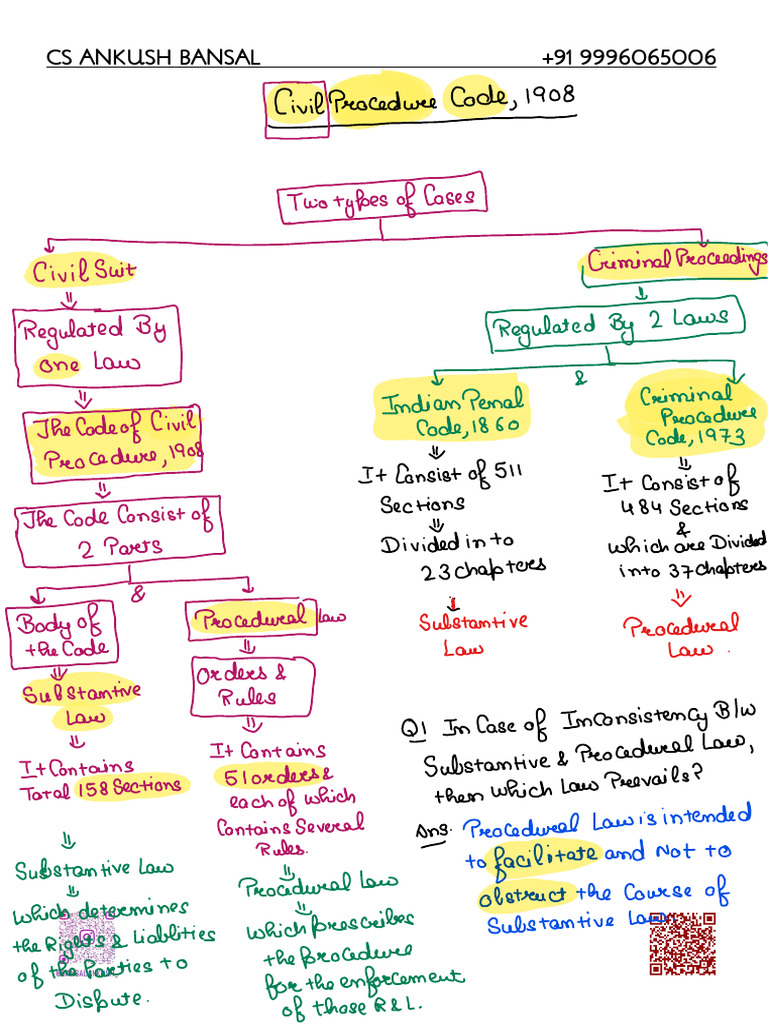 CS ANKUSH BANSAL +91 9996065006
Civil Procedure Code, 1908
Two types of Cases
Civil Suit
Regulated By
one Law
The Code of Civil
Procedure, 1908
The Code Consist of
2 Parts
&
Body of
the Code
Substantive
Law
It Contains
Total 158 Sections
Substantive Law
Which determines
the Rights & Liablities
of the Parties to
Dispute.
Procedural Law
Orders &
Rules
It Contains
51 orders &
each of which
Contains Several
Rules.
Procedural Law
which prescribes
the procedure
for the enforcement
of those R&L.
Criminal Proceedings
Regulated By 2 Laws
&
Indian Penal
Code, 1860
It Consist of 511
Sections
Divided in to
23 chapters
Substantive
Law
Criminal
Procedure
Code, 1973
It Consist of
484 Sections
&
which are Divided
into 37 chapters
Procedural
Law.
Q1 In Case of Inconsistency B/w
Substantive & Procedural Law,
then which Law Prevails?
Ans. Procedural Law is intended
to facilitate and Not to
obstruct the Course of
Substantive Law